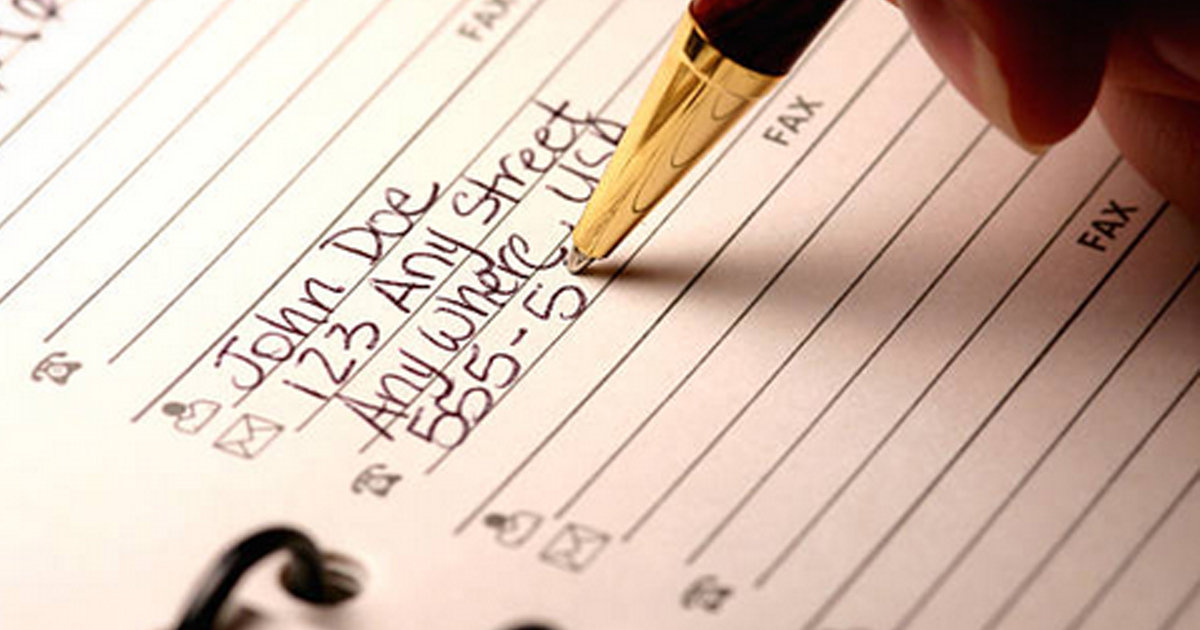 FAX
John Doe
123 Any Street
Anywhere, USA
555-5
FAX
FAX